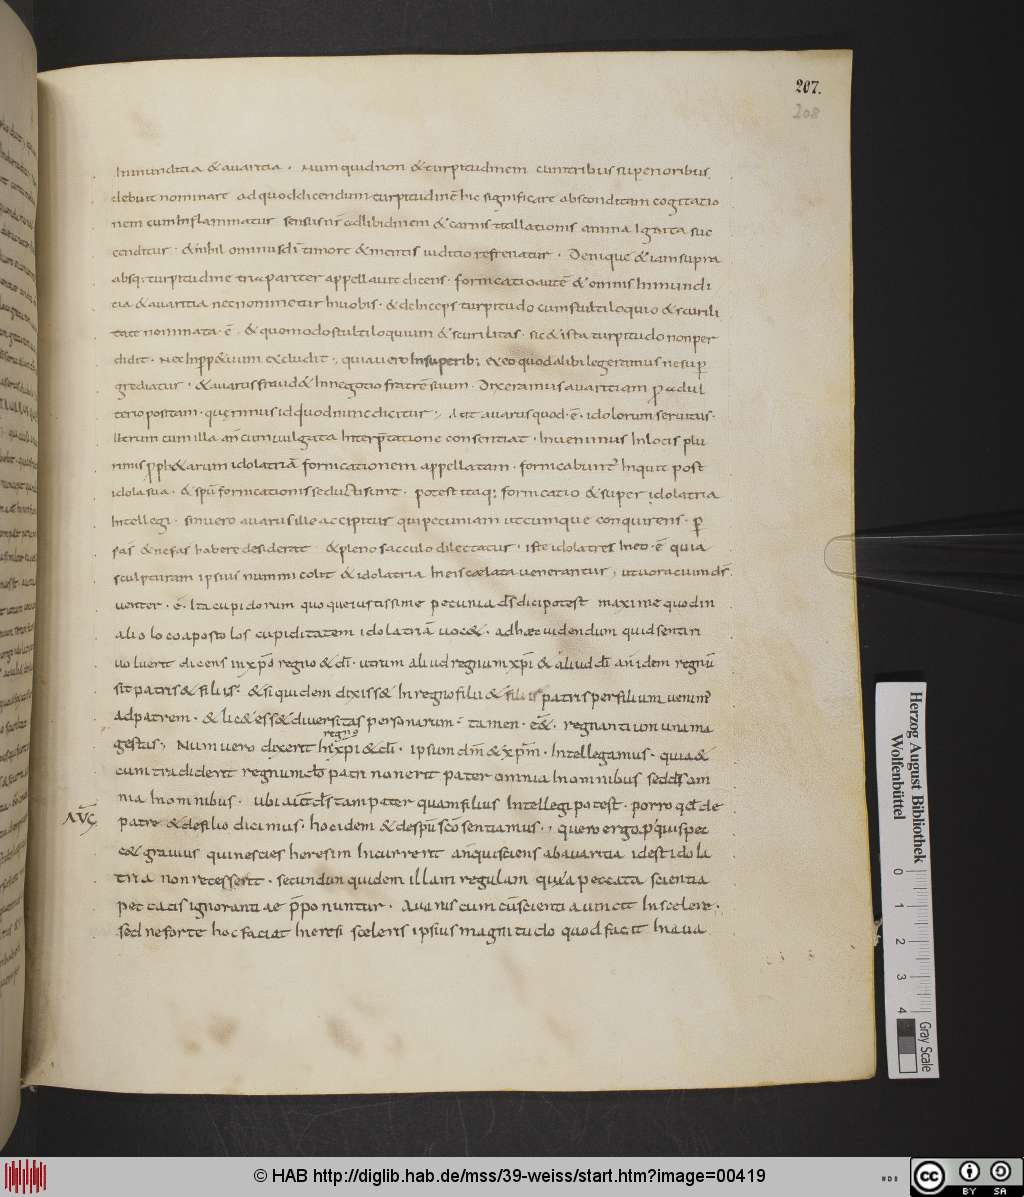 207.
208
Inmunditia & avaritia . Numquid non & turpitudinem cum tribus superioribus
debuit nominare ad quod dicendum turpitudinē hic significare absconditam cogitatio
nem cum Inflammatur sensus nr̄ ad libidinem & carnis titillationis anima Ignita suc
cenditur . & nihil ominus dī timore & mentis iuditio refrenatur . Denique & iam supra
absq; turpitudine tria pariter appellavit dicens . fornicatio autē & omnis Inmundi
tia & avaritia nec nominetur In vobis . & deInceps turpitudo cum stultiloquio & scurili
tate nominata . ē . & quomodo stultiloquium & scurilitas . sic & ista turpitudo non per
didit . Nec Inpp&uum excludit ., quia vero Insuperib; ex eo quod alibi legeramus ne sup̄
grediatur . & avarus fraud& In negotio fratrē suum . Dixeramus avaritiam p̄ adul
terio positam . quęrimus id quod nunc dicitur ., Aut avarus quod . ē . idolorum servitus .
Iterum cum illa an̄ cum vulgata Interp̄tatione consentiat . Invenimus In locis plu
rimis p̄ph&arum idolatriā fornicationem appellatam . fornicabunt' Inquit post
idola sua . & spū fornicationis seducti sunt . potest itaq; fornicatio & super idolatria
Intellegi . sin vero avarus ille accipitur qui pecuniam utcumque conquirens . p̄
fas & nefas habere desiderat & pleno sacculo dilectatur . iste idolatres In eo . ē quia
sculpturam ipsius nummi colit & idolatria In eis cælata venerantur , ut voracium ds̄
venter . ē . Ita cupidorum quoque iustissime pecunia ds̄ dici potest maxime quod in
alio loco apostolos cupiditatem idolatriā voc& . ad hæc videndum quid sentiri
voluerit dicens in xp̄o regno & dī . utrum aliud regnum xp̄i & aliud dī an idem regnū
sit patris & filii . & si quidem dixiss& In regno filii & patris per filium venim'
ad patrem . & lic& ess& diversitas personarum . tamen . regnantium una ma
gestas ., Num vero dixerit In xp̄i & dī . ipsum dm̄ & xp̄m . Intellegamus . quia &
regno
cum tradiderit regnum dō patri non erit pater omnia In omnibus sed ds̄ om
nia In omnibus . ubi aūt ds̄ tam pater quam filius Intellegi potest . porro qđ de
AVG
patre & de filio dicimus . hoc idem & de spū scō sentiamus ., quero ergo p̄ quis pec
c& gravius qui nescies heresim Incurrerit an qui sciens ab avaritia id est idola
tria non recesserit . secundum quidem illam regulam quia peccata scientia
peccatis ignorantiae p̄ponuntur . Avarus cum scienti a vincit In scelere .
sed ne forte hoc faciat In eresi sceleris ipsius magnitudo quod facit In ava
Herzog August Bibliothek
Wolfenbüttel
0 1 2 3 4
Gray Scale
© HAB http://diglib.hab.de/mss/39-weiss/start.htm?image=00419
cc BY SA